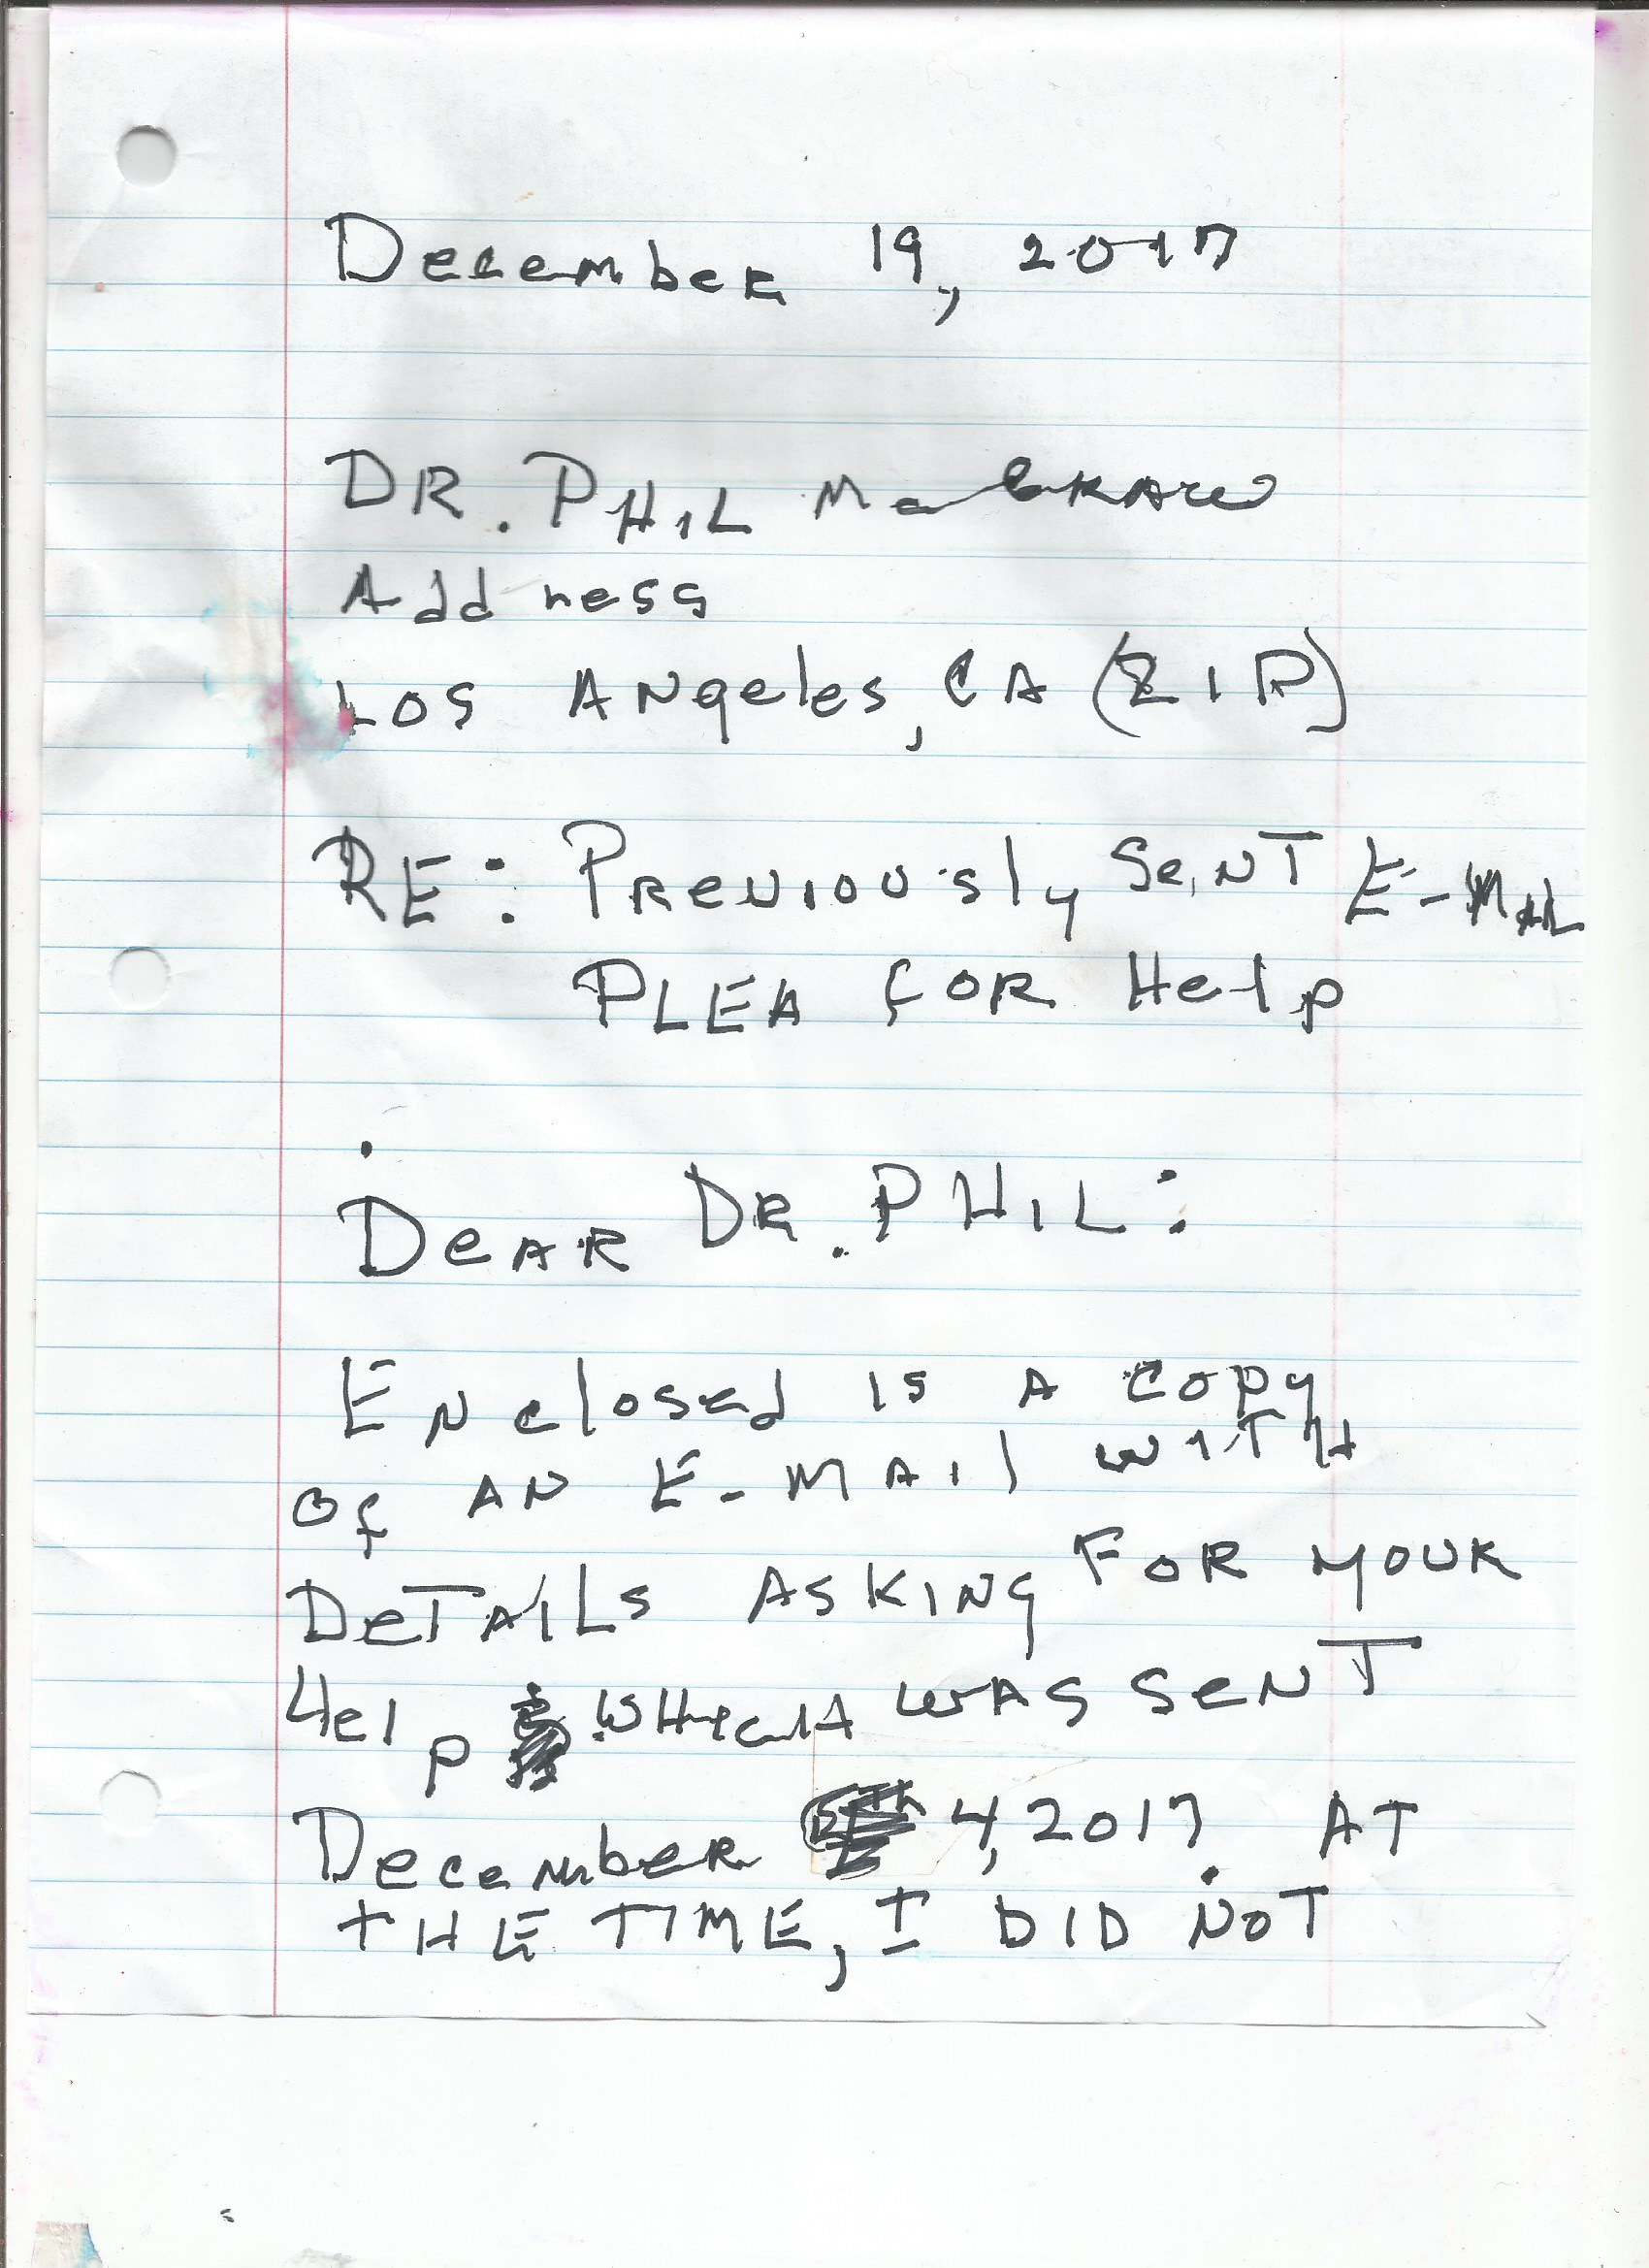 December 19, 2017
DR. PHIL McGRAW
Address
Los Angeles, CA (ZIP)
RE: Previously Sent E-Mail
PLEA FOR Help
DEAR DR. PHIL:
Enclosed is a copy
of AN E-MAil WITH
DETAILS ASKING FOR YOUR
Help WHICH WAS SENT
December 4, 2017. AT
THE TIME, I DID NOT